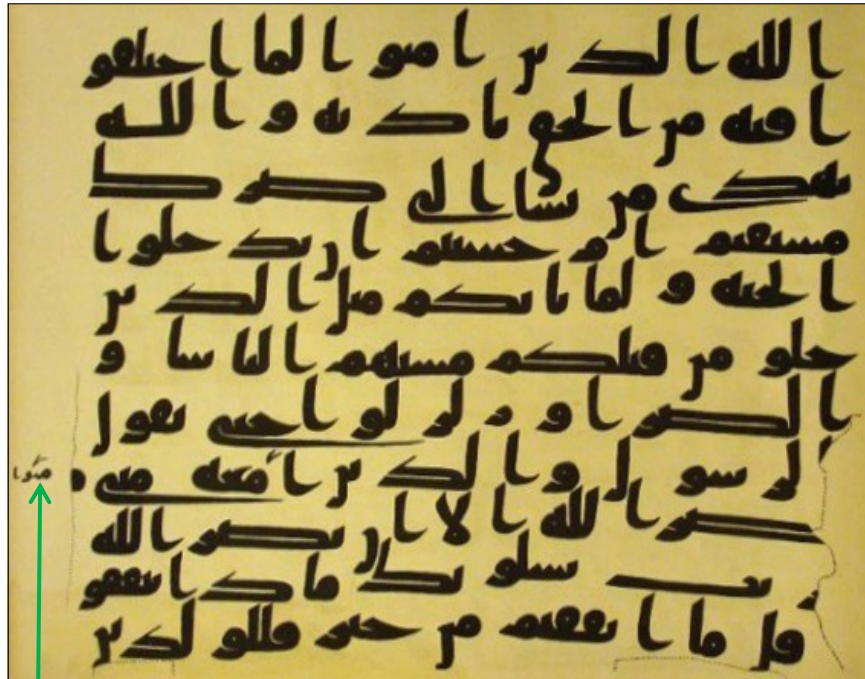 الله الذين امنوا لما اختلفو
ا فيه من الحق باذنه والله
يهدي من يشا الى صرط
مستقيم ام حسبتم ان تدخلوا
الجنة ولما ياتكم مثل الذين
خلو من قبلكم مستهم الباسا و
الضرا و زلزلوا حتى يقول
الرسول والذين ا معه متى
منوا
نصر الله الا ان نصر الله
يب يسلونك ماذا ينفقو
قل ما انفقتم من خير فللولدين